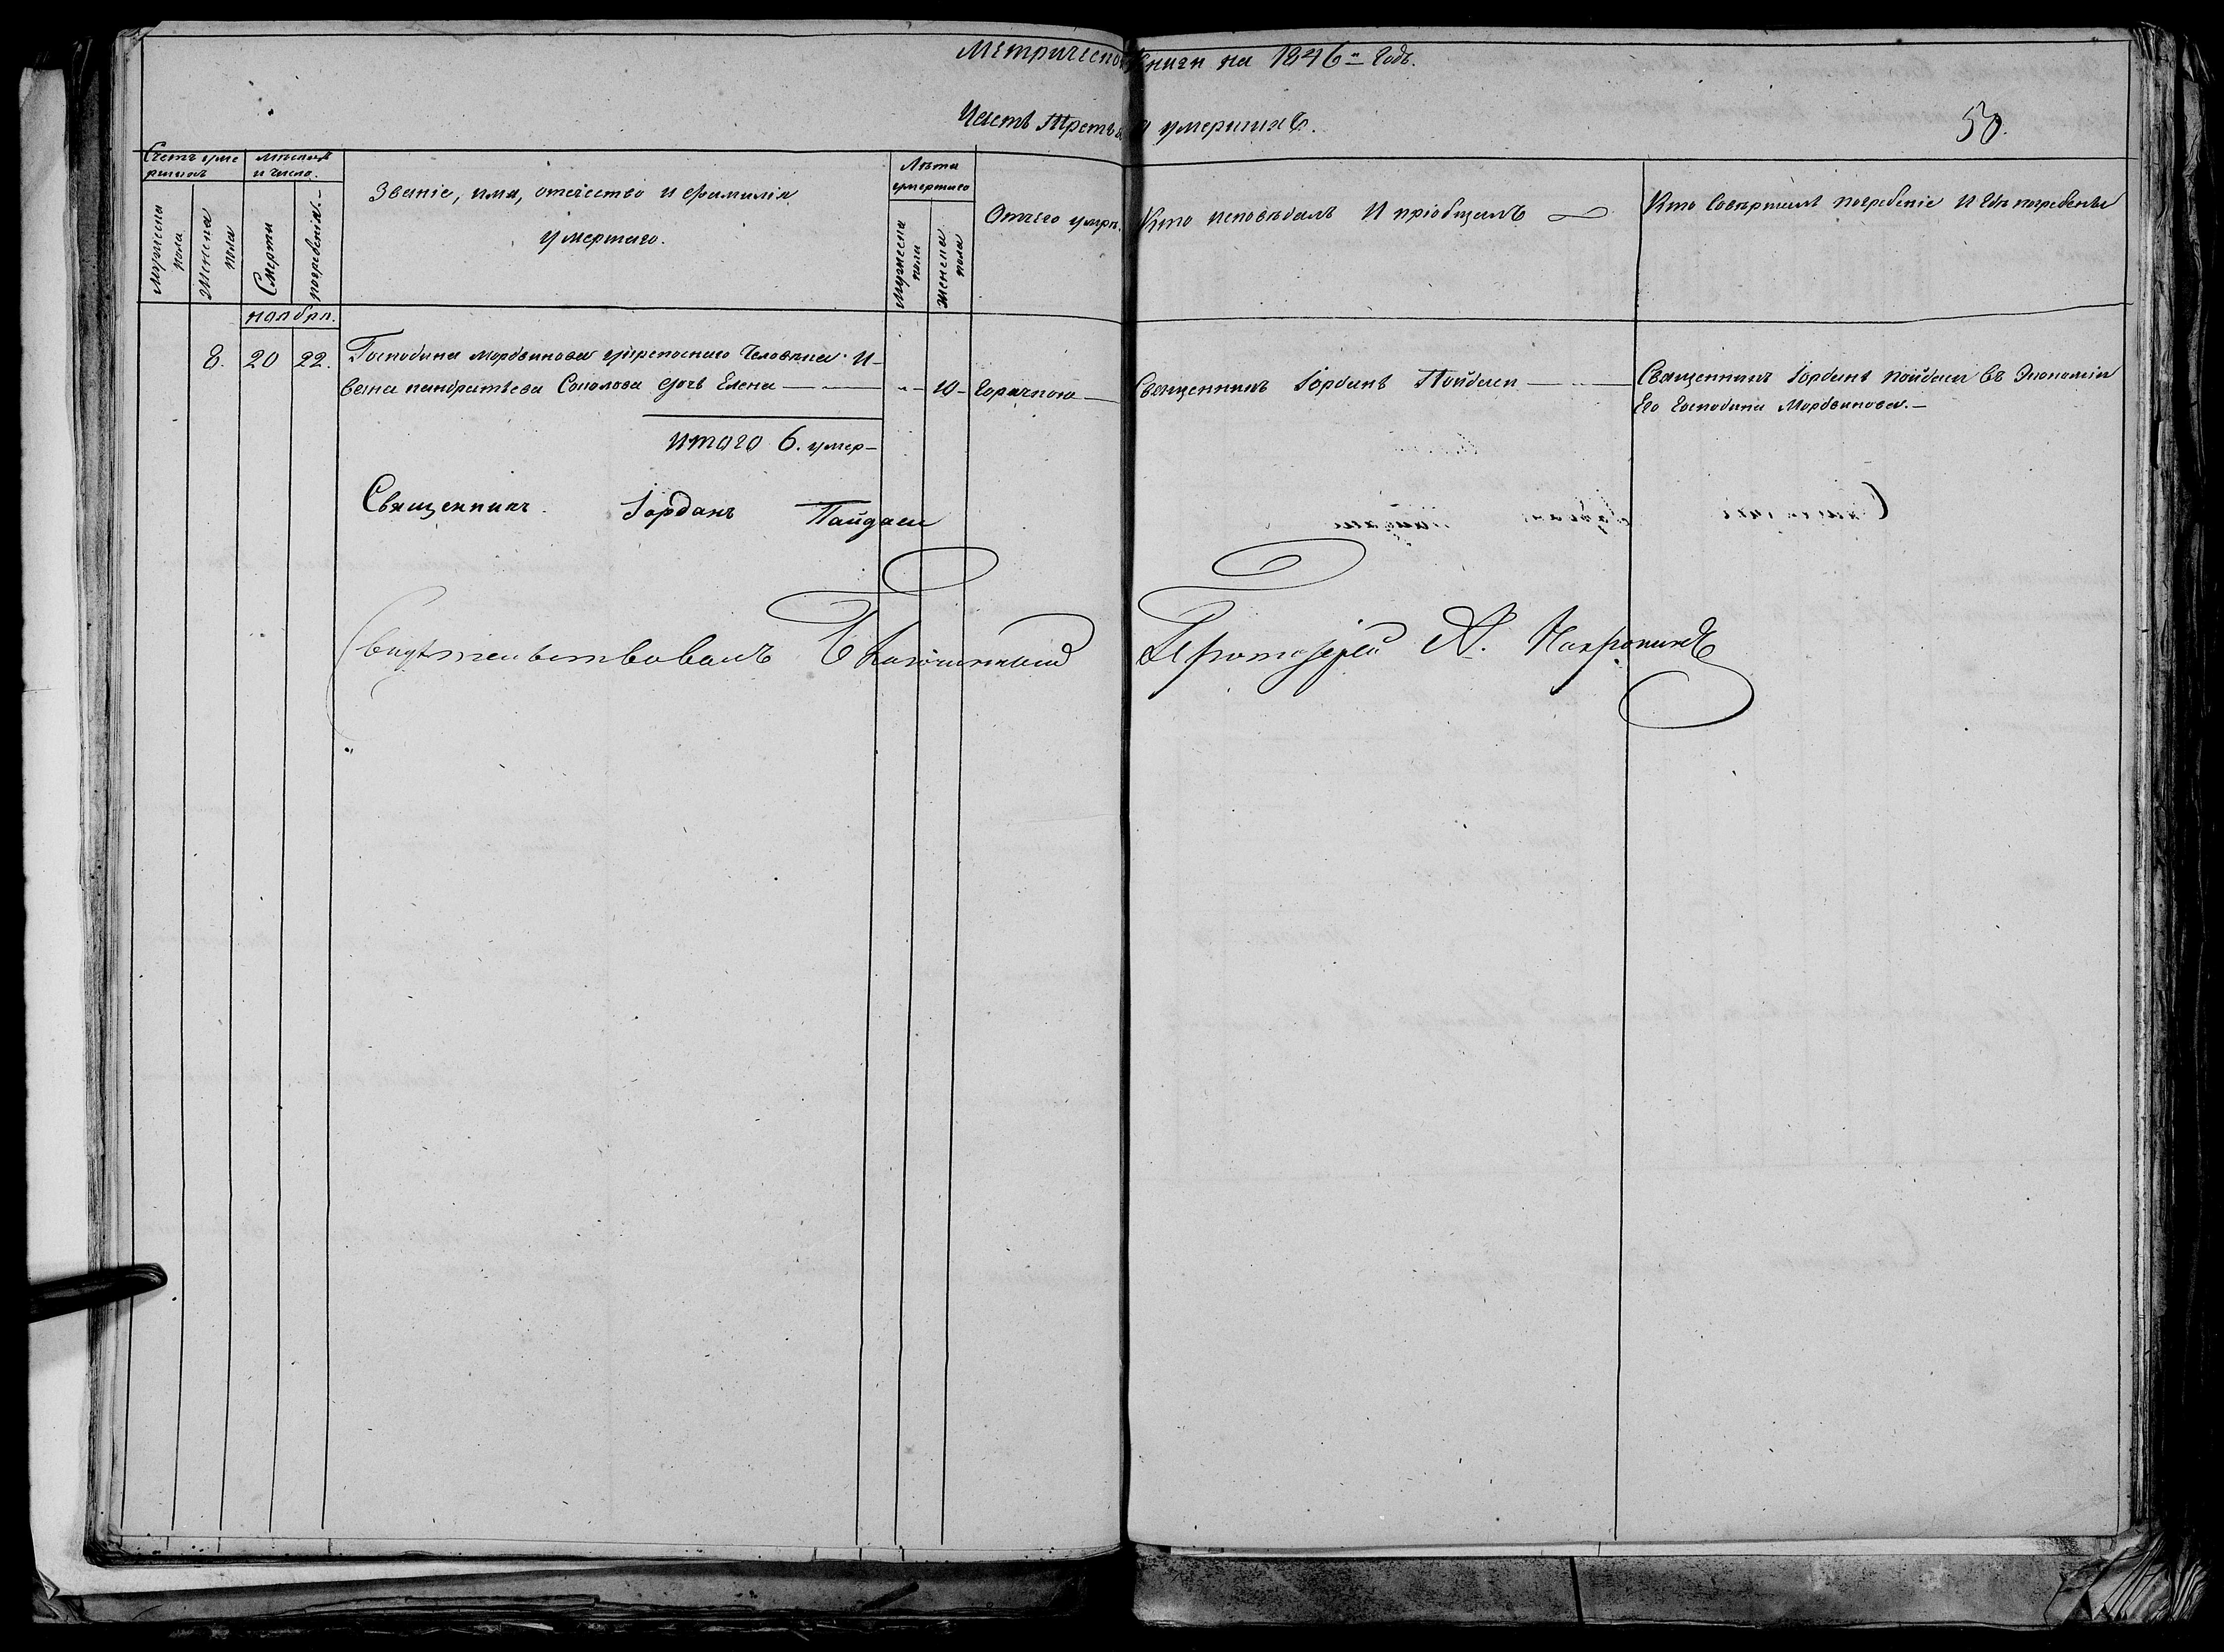 Метрической Книги на 1846й Годъ.
Часть Третья о умершихъ.
50.
Счетъ уме
ршихъ
Мѣсяцъ
и число.
Званіе, имя, отечество и фамилія
умершаго.
Лѣта
умершаго
Отчего умре.
Кто исповѣдалъ И пріобщалъ
Кто Совершалъ погребеніе И гдѣ погребены
Мужеска
пола
Женска
пола
Смерти
погребенія.
Мужеска
пола
Женска
пола
ноября.
8. 20 22. Господина Мордвинова крепостнаго Человека И-
вана панкратьева Соколова дочь Елена — 10 — Горячкою — Священникъ Іорданъ Пойдаси — Священникъ Іорданъ пойдаси Въ Экономіи
Его Господина Мордвинова.—
итого 6. умер—
Священникъ Іорданъ Пайдаси
Свидѣтельствовалъ Благочинный Протоіерей А.